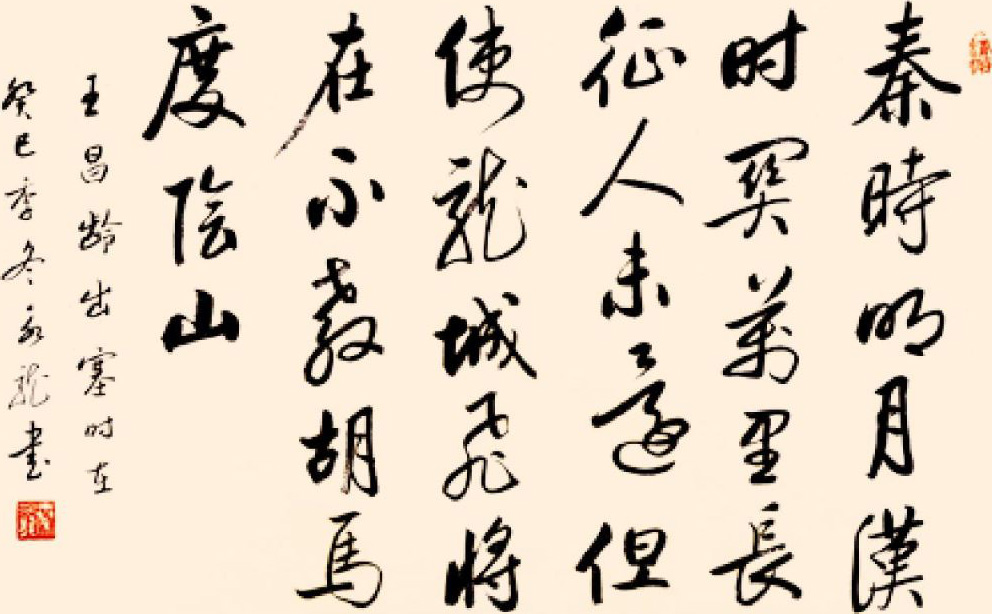 秦時明月漢
时関萬里長
征人未還但
使龍城飛將
在不教胡馬
度陰山
王昌龄出塞时在
癸巳季冬永龍書